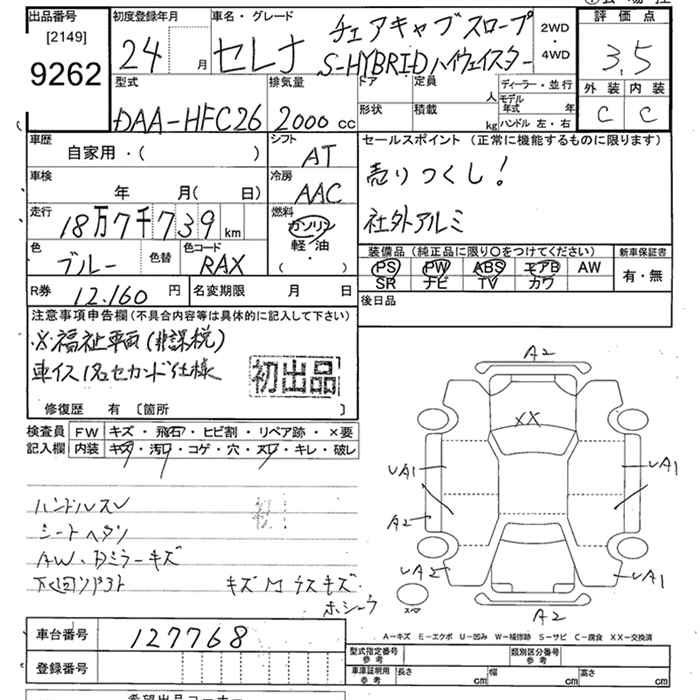 出品番号
[2149]
9262
初度登録年月
24 月
車名・グレード
セレナ
チェアキャブスロープ
S-HYBRID ハイウェイスター
2WD
・
4WD
評価点
3.5
外装 内装
C C
型式
DAA-HFC26
排気量
2000 cc
ドア
定員
人
形状
積載
kg
ディーラー・並行
モデル
年式 年
ハンドル 左・右
車歴
自家用・( )
シフト
AT
車検
年 月( 日)
冷房
AAC
走行
18万7千739 km
燃料
ガソリン
軽・油
( ・ )
色
ブルー
色替
色コード
RAX
R券 12.160 円
名変期限 月 日
セールスポイント(正常に機能するものに限ります)
売りつくし!
社外アルミ
装備品(純正品に限り○をつけてください)
PS PW ABS エアB AW
SR ナビ TV カワ
新車保証書
有・無
後日品
注意事項申告欄(不具合内容等は具体的に記入して下さい)
※福祉車両(非課税)
車イス1名セカンド仕様
初出品
修復歴 有 〔箇所 〕
検査員
記入欄
FW キズ・飛石・ヒビ割・リペア跡・×要
内装 キズ・汚れ・コゲ・穴・スレ・キレ・破レ
ハンドルスレ
シートヘタリ
AW・Dミラーキズ
キズ
A2
XX
UA1
UA1
A2
UA2
UA1
A2
スペア
A-キズ E-エクボ U-凹み W-補修跡 S-サビ C-腐食 XX-交換済
車台番号 127768
登録番号
型式指定番号
参考
類別区分番号
参考
車庫証明用
参考
長さ cm
幅 cm
高さ cm
希望出品コーナー